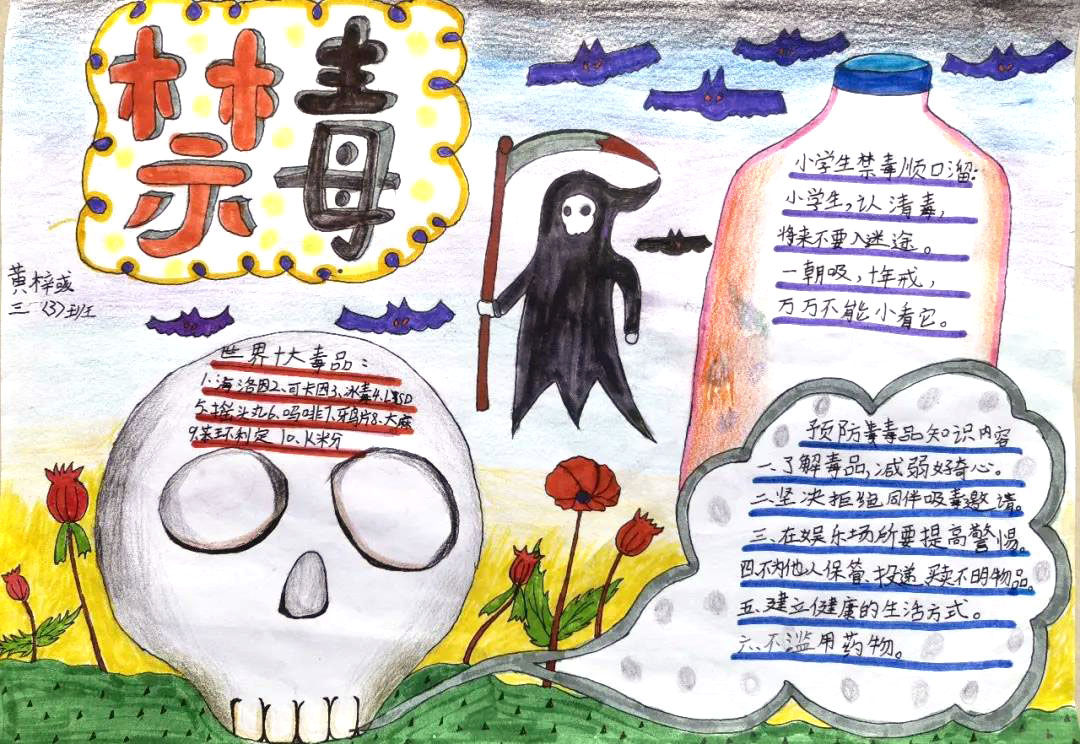 禁毒
黄梓彧
三(3)班
世界十大毒品:
1.海洛因2、可卡因3、冰毒4.LSD
5、摇头丸6、吗啡7、牙鸟片8、大麻
9、苯环利定 10、K米分
小学生禁毒顺口溜:
小学生,认清毒,
将来不要入迷途。
一朝吸,十年戒,
万万不能小看它。
预防毒品知识内容
一、了解毒品,减弱好奇心。
二、坚决拒绝同伴吸毒邀请。
三、在娱乐场所要提高警惕。
四、不为他人保管、投递、买卖不明物品。
五、建立健康的生活方式。
六、不滥用药物。